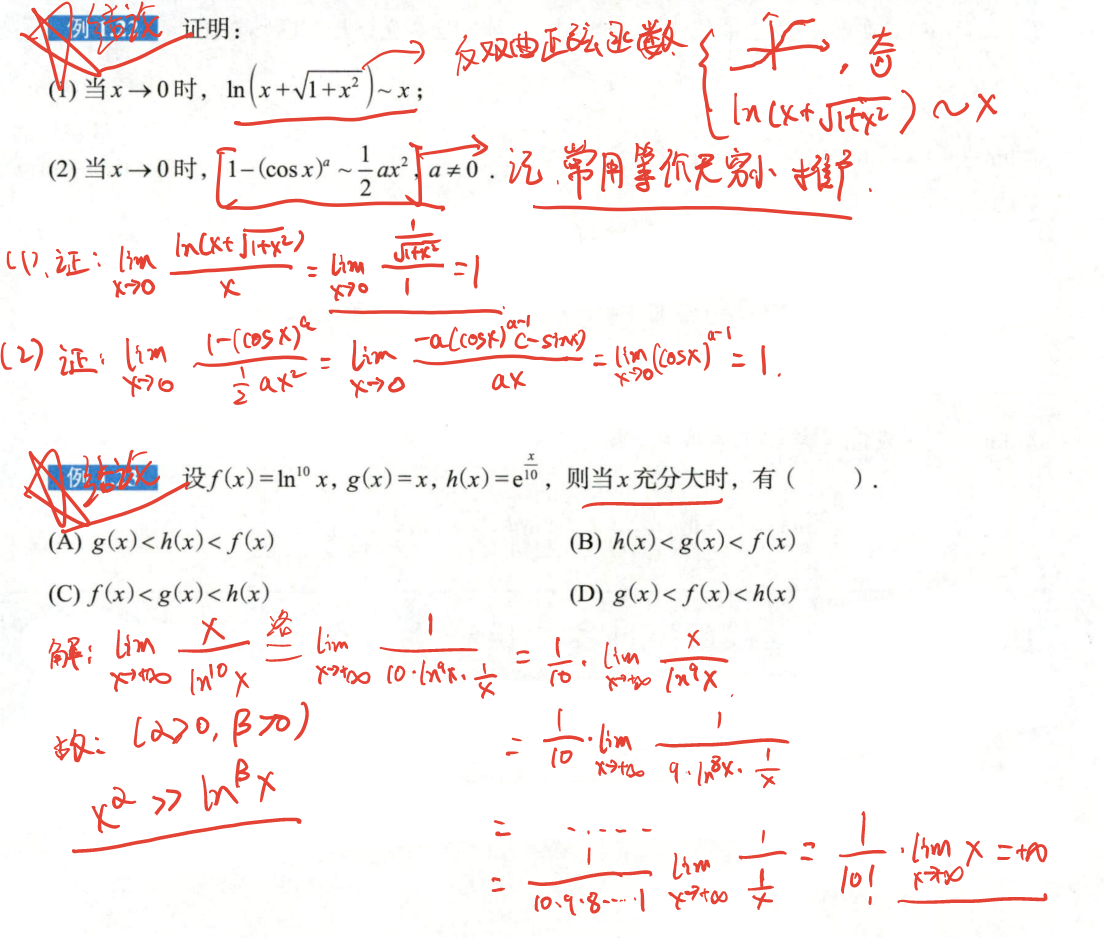 结论 证明:
(1) 当 x→0 时, ln(x+√(1+x²)) ~ x; → 反双曲正弦函数 { , 奇
ln(x+√(1+x²)) ~ x
(2) 当 x→0 时, 1-(cos x)^a ~ 1/2 ax², a≠0. 记. 常用等价无穷小推广.
(1). 证: lim x→0 ln(x+√(1+x²))/x = lim x→0 (1/√(1+x²))/1 = 1
(2) 证: lim x→0 (1-(cos x)^a)/(1/2 ax²) = lim x→0 (-a(cos x)^(a-1)(-sin x))/(ax) = lim x→0 (cos x)^(a-1) = 1.
结论 设 f(x)=ln¹⁰ x, g(x)=x, h(x)=e^(x/10), 则当 x 充分大时, 有 ( ).
(A) g(x)<h(x)<f(x) (B) h(x)<g(x)<f(x)
(C) f(x)<g(x)<h(x) (D) g(x)<f(x)<h(x)
解: lim x→+∞ x/ln¹⁰x 洛= lim x→+∞ 1/(10·ln⁹x·1/x) = 1/10 · lim x→+∞ x/ln⁹x.
故: (α>0, β>0) = 1/10 · lim x→+∞ 1/(9·ln⁸x·1/x)
x^α >> ln^β x
= ......
= 1/(10·9·8·····1) lim x→+∞ 1/(1/x) = 1/10! · lim x→+∞ x = +∞